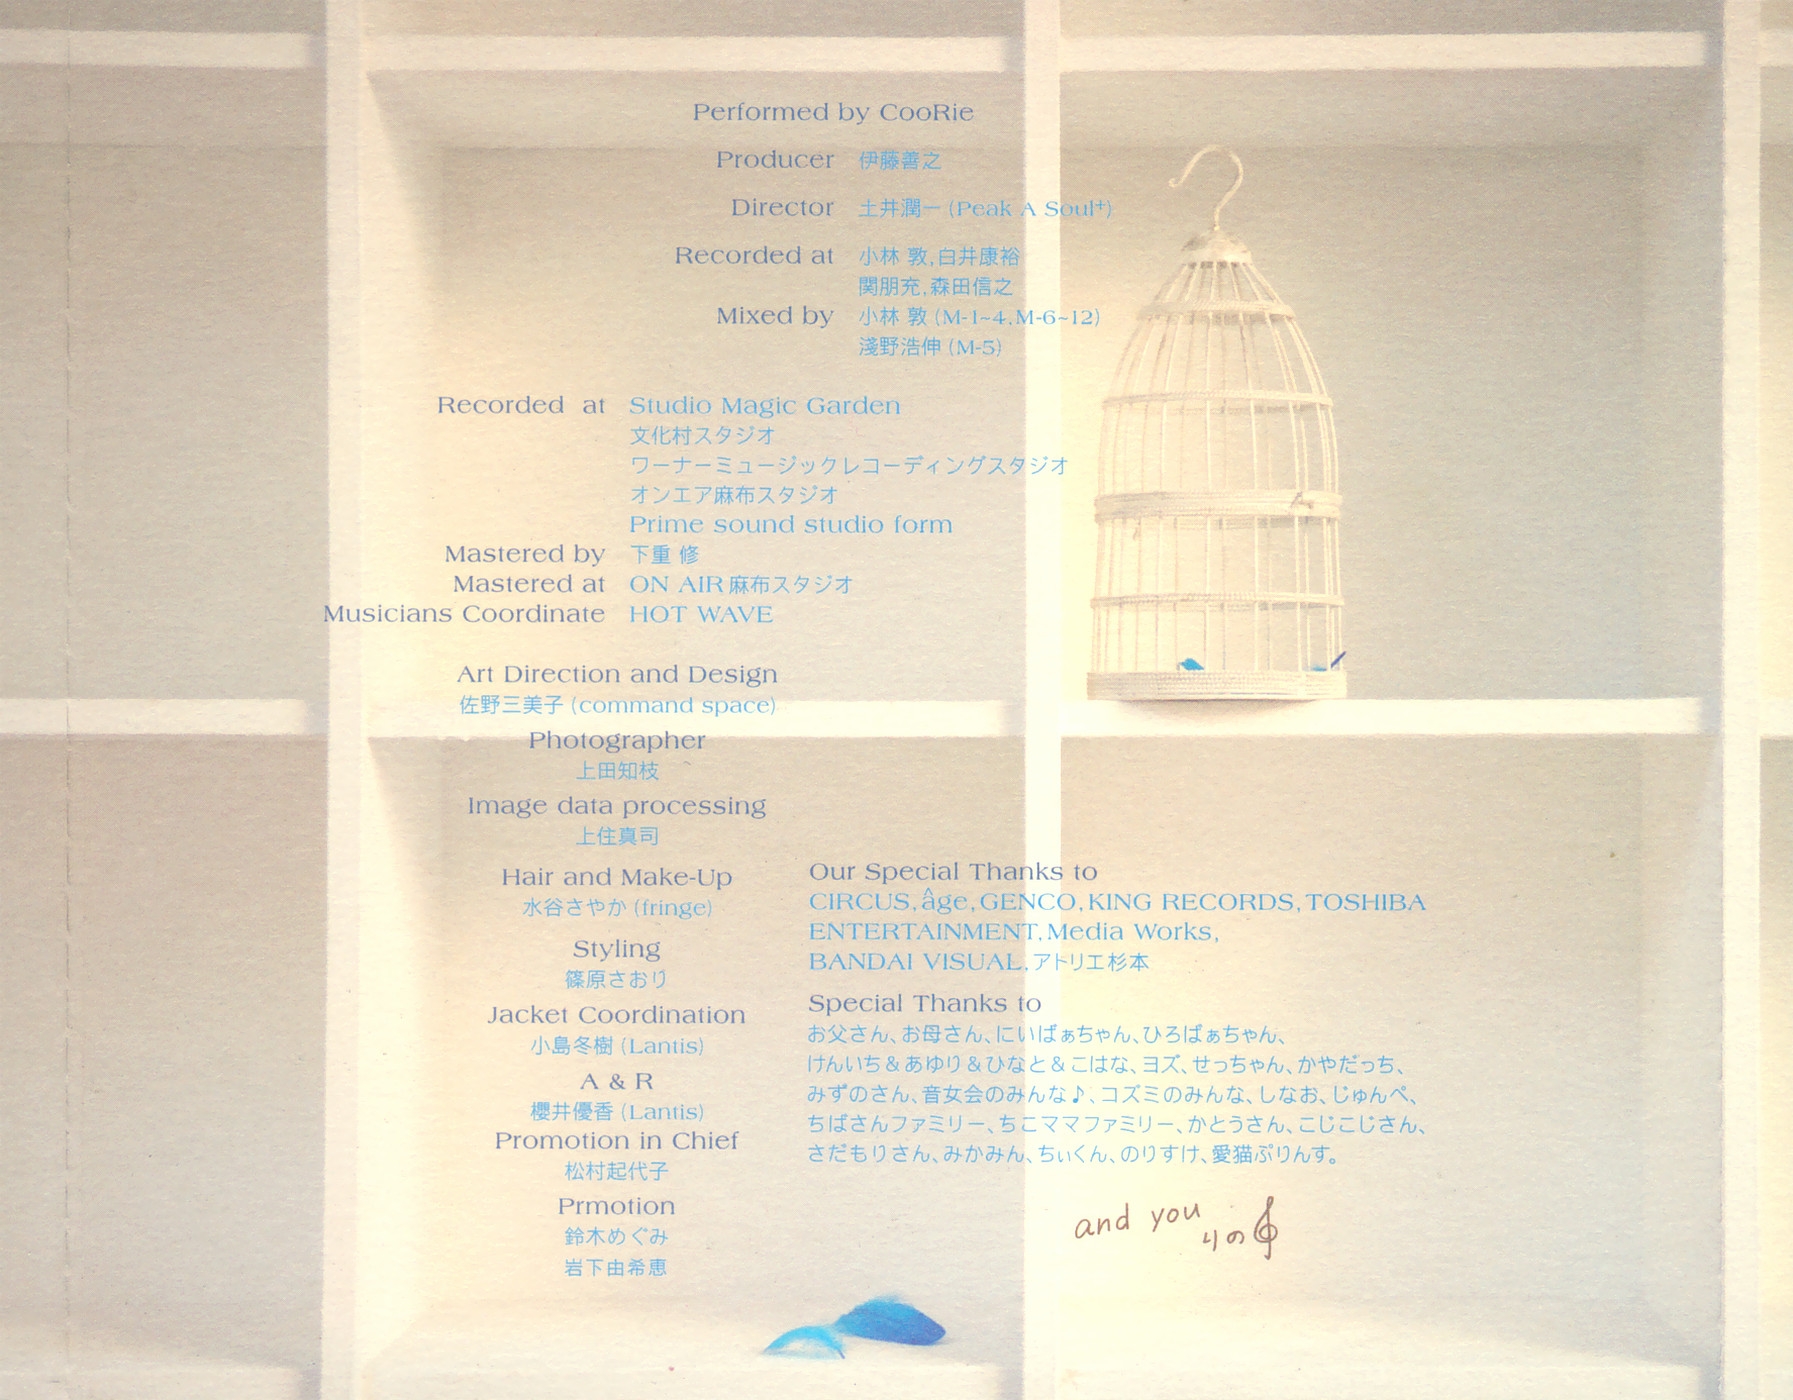 Performed by CooRie
Producer 伊藤善之
Director 土井潤一 (Peak A Soul+)
Recorded at 小林 敦,白井康裕
関朋充,森田信之
Mixed by 小林 敦 (M-1~4,M-6~12)
淺野浩伸 (M-5)
Recorded at Studio Magic Garden
文化村スタジオ
ワーナーミュージックレコーディングスタジオ
オンエア麻布スタジオ
Prime sound studio form
Mastered by 下重 修
Mastered at ON AIR麻布スタジオ
Musicians Coordinate HOT WAVE
Art Direction and Design
佐野三美子 (command space)
Photographer
上田知枝
Image data processing
上住真司
Hair and Make-Up
水谷さやか (fringe)
Styling
篠原さおり
Jacket Coordination
小島冬樹 (Lantis)
A & R
櫻井優香 (Lantis)
Promotion in Chief
松村起代子
Prmotion
鈴木めぐみ
岩下由希恵
Our Special Thanks to
CIRCUS,âge,GENCO,KING RECORDS,TOSHIBA
ENTERTAINMENT,Media Works,
BANDAI VISUAL,アトリエ杉本
Special Thanks to
お父さん、お母さん、にいばぁちゃん、ひろばぁちゃん、
けんいち&あゆり&ひなと&こはな、ヨズ、せっちゃん、かやだっち、
みずのさん、音女会のみんな♪、コズミのみんな、しなお、じゅんぺ、
ちばさんファミリー、ちこママファミリー、かとうさん、こじこじさん、
さだもりさん、みかみん、ちぃくん、のりすけ、愛猫ぷりんす。
and you
りの